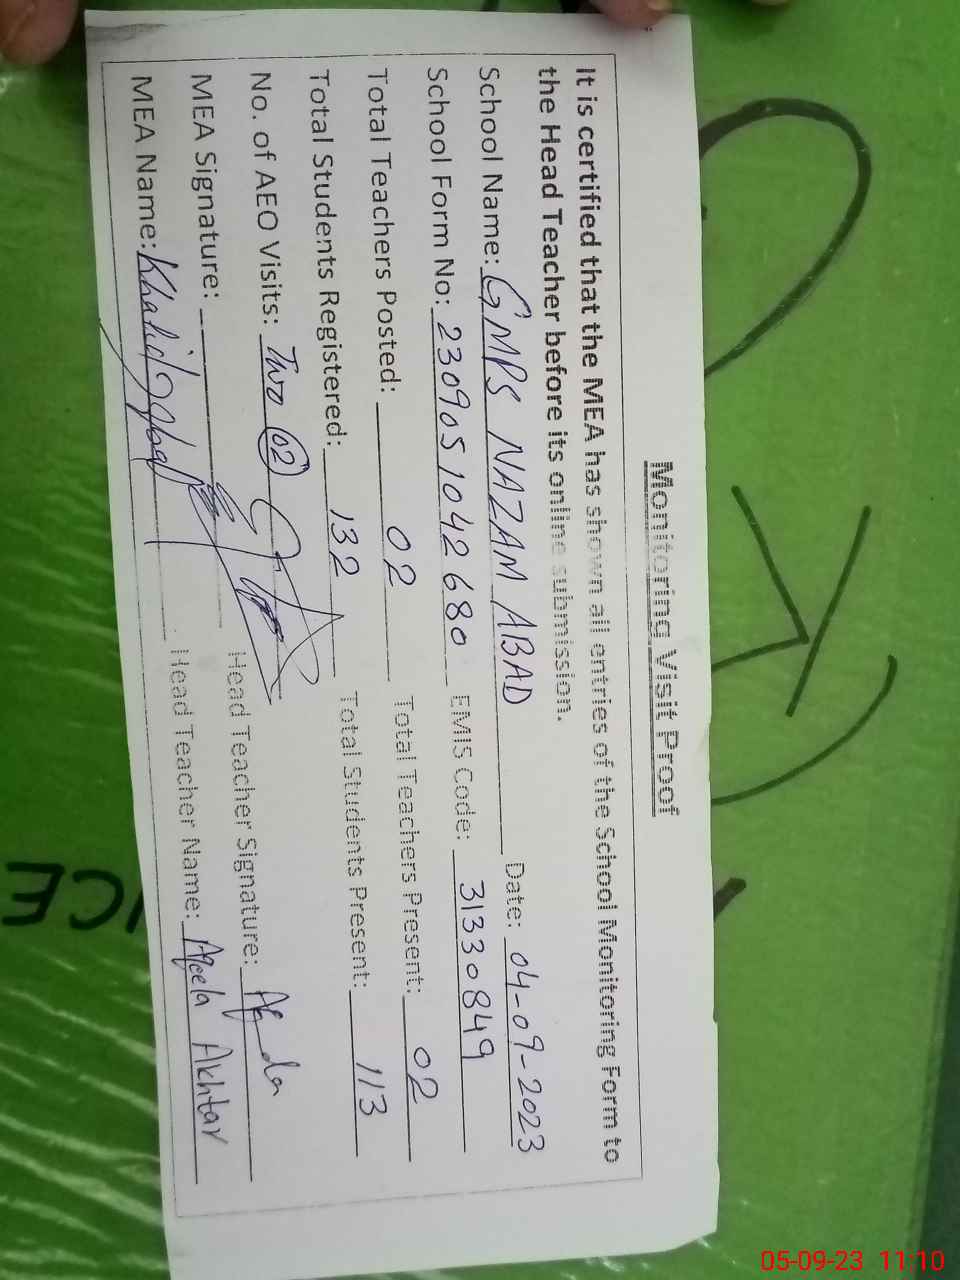 Monitoring Visit Proof
It is certified that the MEA has shown all entries of the School Monitoring Form to
the Head Teacher before its online submission.
School Name: GMPS NAZAM ABAD Date: 04-09-2023
School Form No: 2309051042680 EMIS Code: 31330849
Total Teachers Posted: 02 Total Teachers Present: 02
Total Students Registered: 132 Total Students Present: 113
No. of AEO Visits: Two 02
MEA Signature: Head Teacher Signature:
MEA Name: Khalid Iqbal Head Teacher Name: Aqeela Akhtar
ICE
05-09-23 11:10